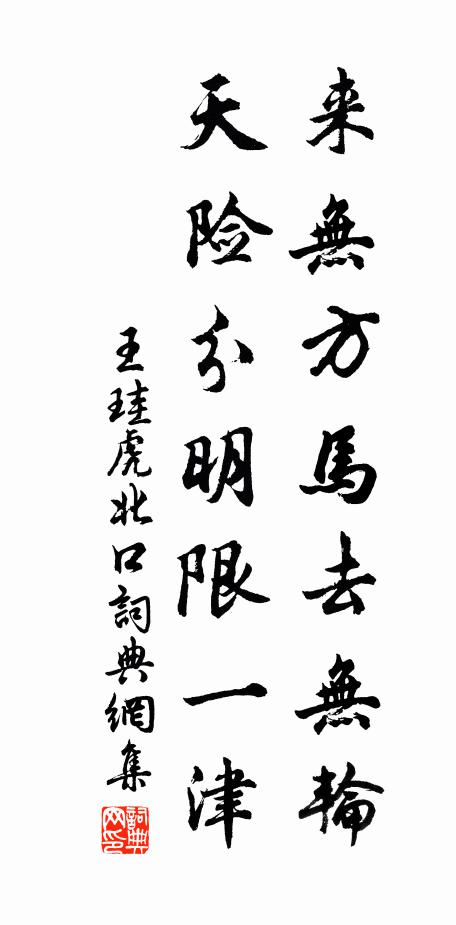 来無方馬去無輪
天险分明限一津
王珪虎北口詞典網集
詞典
网印